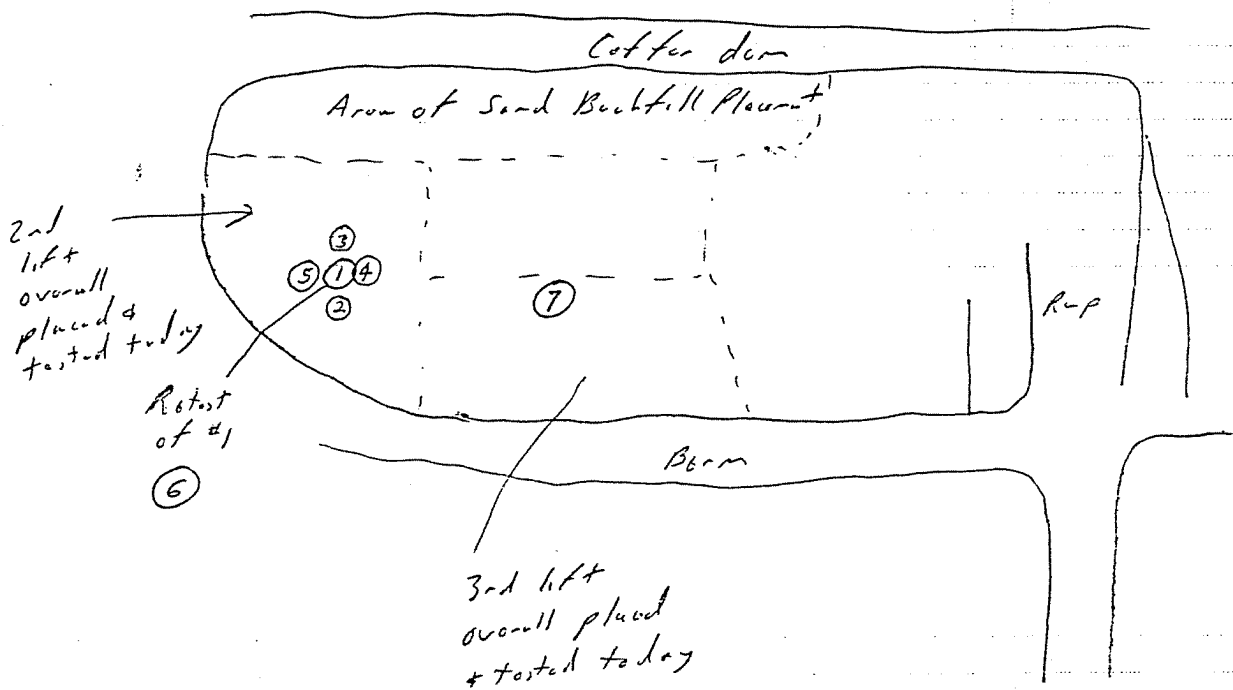 Coffer dam
Area of Sand Backfill Placement
2nd
lift
overall
placed &
tested today
3
5 1 4
2
7
Ramp
Retest
of #1
6
Berm
3rd lift
overall placed
& tested today